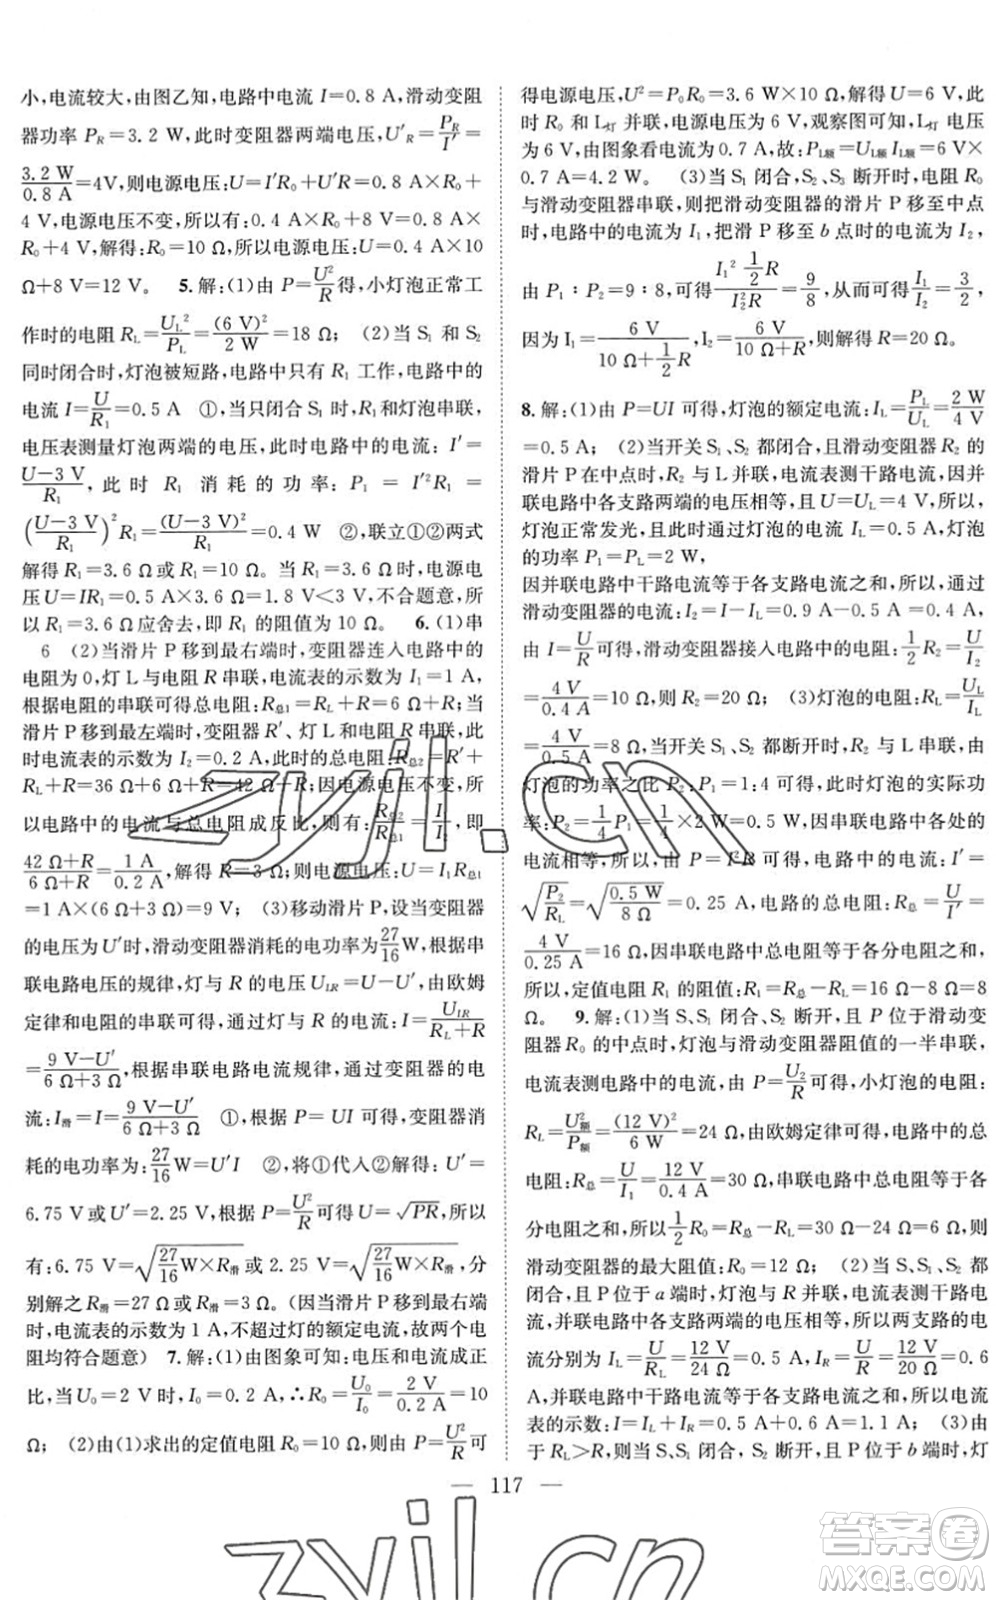 小,电流较大,由图乙知,电路中电流 I=0.8 A,滑动变阻
器功率 P_R=3.2 W,此时变阻器两端电压,U′_R=P_R/I′=
3.2 W/0.8 A=4V,则电源电压:U=I′R₀+U′R=0.8 A×R₀+
4 V,电源电压不变,所以有:0.4 A×R₀+8 V=0.8 A×
R₀+4 V,解得:R₀=10 Ω,所以电源电压:U=0.4 A×10
Ω+8 V=12 V。 5.解:(1)由 P=U²/R得,小灯泡正常工
作时的电阻 R_L=U_L²/P_L=(6 V)²/2 W=18 Ω; (2)当 S₁ 和 S₂
同时闭合时,灯泡被短路,电路中只有 R₁ 工作,电路中的
电流 I=U/R₁=0.5 A ①,当只闭合 S₁ 时,R₁和灯泡串联,
电压表测量灯泡两端的电压,此时电路中的电流: I′=
(U-3 V)/R₁, 此 时 R₁ 消 耗 的 功 率: P₁ = I′²R₁ =
((U-3 V)/R₁)²R₁=(U-3 V)²/R₁=0.4 W ②,联立①②两式
解得 R₁=3.6 Ω或 R₁=10 Ω。当 R₁=3.6 Ω时,电源电
压U=IR₁=0.5 A×3.6 Ω=1.8 V<3 V,不合题意,所
以 R₁=3.6 Ω应舍去,即 R₁ 的阻值为 10 Ω。 6.(1)串
6 (2)当滑片 P移到最右端时,变阻器连入电路中的
电阻为0,灯 L与电阻 R串联,电流表的示数为 I₁=1 A,
根据电阻的串联可得总电阻:R总1=R_L+R=6 Ω+R;当
滑片P移到最左端时,变阻器 R′、灯L和电阻 R串联,此
时电流表的示数为 I₂=0.2 A,此时的总电阻:R总2=R′+
R_L+R=36 Ω+6 Ω+R=42 Ω+R;因电源电压不变,所
以电路中的电流与总电阻成反比,则有:R总2/R总1=I₁/I₂,即
(42 Ω+R)/(6 Ω+R)=1 A/0.2 A,解得 R=3 Ω;则电源电压:U=I₁R总1
=1 A×(6 Ω+3 Ω)=9 V; (3)移动滑片 P,设当变阻器
的电压为U′时,滑动变阻器消耗的电功率为27/16W,根据串
联电路电压的规律,灯与 R 的电压U_LR=U-U′,由欧姆
定律和电阻的串联可得,通过灯与 R 的电流:I=U_LR/(R_L+R)
=(9 V-U′)/(6 Ω+3 Ω),根据串联电路电流规律,灯与变阻器的电
流:I滑=I=(9 V-U′)/(6 Ω+3 Ω) ①,根据 P=UI 可得,变阻器消
耗的电功率为:27/16W=U′I ②,将①代入②解得: U′=
6.75 V或U′=2.25 V,根据 P=U²/R可得 U=√PR,所以
有:6.75 V=√(27/16W×R滑)或 2.25 V=√(27/16W×R滑),分
别解之 R滑=27 Ω或 R滑=3 Ω。(因当滑片 P移到最右端
时,电流表的示数为 1 A,不超过灯的额定电流,故两个电
阻均符合题意) 7.解:(1)由图象可知:电压和电流成正
比,当 U₀=2 V时,I₀=0.2 A,∴R₀=U₀/I₀=2 V/0.2 A=10
Ω; (2)由(1)求出的定值电阻 R₀=10 Ω,则由 P=U²/R可
得电源电压,U²=P₀R₀=3.6 W×10 Ω,解得U=6 V,此
时 R₀ 和 L灯 并联,电源电压为 6 V,观察图可知,L灯 电压
为 6 V,由图象看电流为0.7 A,故:P_L额=U_L额 I_L额=6 V×
0.7 A=4.2 W。 (3)当 S₁ 闭合,S₂、S₃ 断开时,电阻 R₀
与滑动变阻器串联,则把滑动变阻器的滑片 P移至中点
时,电路中的电流为 I₁,把滑 P移至 b 点时的电流为 I₂,
由 P₁∶P₂=9∶8,可得(I₁² 1/2 R)/(I₂²R)=9/8,从而可得I₁/I₂=3/2,
因为 I₁=6 V/(10 Ω+1/2 R),I₂=6 V/(10 Ω+R),则解得 R=20 Ω。
8.解:(1)由 P=UI 可得,灯泡的额定电流:I_L=P_L/U_L=2 W/4 V
=0.5 A; (2)当开关 S₁、S₂ 都闭合,且滑动变阻器 R₂ 的
滑片 P在中点时,R₂ 与 L并联,电流表测干路电流,因并
联电路中各支路两端的电压相等,且 U=U_L=4 V,所以,
灯泡正常发光,且此时通过灯泡的电流 I_L=0.5 A,灯泡
的功率 P₁=P_L=2 W,
因并联电路中干路电流等于各支路电流之和,所以,通过
滑动变阻器的电流:I₂=I-I_L=0.9 A-0.5 A=0.4 A,
由 I=U/R可得,滑动变阻器接入电路中的电阻:1/2 R₂=U/I₂
=4 V/0.4 A=10 Ω,则 R₂=20 Ω; (3)灯泡的电阻:R_L=U_L/I_L
=4 V/0.5 A=8 Ω,当开关 S₁、S₂ 都断开时,R₂ 与 L串联,由
灯泡的功率之比 P₂∶P₁=1∶4 可得,此时灯泡的实际功
率:P₂=1/4 P₁=1/4×2 W=0.5 W,因串联电路中各处的
电流相等,所以,由 P=I²R 可得,电路中的电流: I′=
√(P₂/R_L)=√(0.5 W/8 Ω)=0.25 A,电路的总电阻:R总=U/I′=
4 V/0.25 A=16 Ω,因串联电路中总电阻等于各分电阻之和,
所以,定值电阻 R₁ 的阻值:R₁=R总-R_L=16 Ω-8 Ω=8
Ω。 9.解:(1)当 S、S₁ 闭合、S₂ 断开,且 P位于滑动变
阻器R₀ 的中点时,灯泡与滑动变阻器阻值的一半串联,
电流表测电路中的电流,由 P=U₂/R可得,小灯泡的电阻:
R_L=U²额/P额=(12 V)²/6 W=24 Ω,由欧姆定律可得,电路中的总
电阻:R总=U/I₁=12 V/0.4 A=30 Ω,串联电路中总电阻等于各
分电阻之和,所以1/2 R₀=R总-R_L=30 Ω-24 Ω=6 Ω,则
滑动变阻器的最大阻值:R₀=12 Ω; (2)当 S、S₁、S₂ 都
闭合,且 P位于 a 端时,灯泡与 R 并联,电流表测干路电
流,并联电路中各支路两端的电压相等,所以,两支路的电
流分别为 I_L=U/R_L=12 V/24 Ω=0.5 A,I_R=U/R=12 V/20 Ω=0.6
A,并联电路中干路电流等于各支路电流之和,所以电流
表的示数:I=I_L+I_R=0.5 A+0.6 A=1.1 A; (3)由
于 R_L>R,则当 S、S₁ 闭合、S₂ 断开,且P位于 b 端时,灯
— 117 —
zyjl.cn
zyjl.cn
答案卷
MXQE.COM